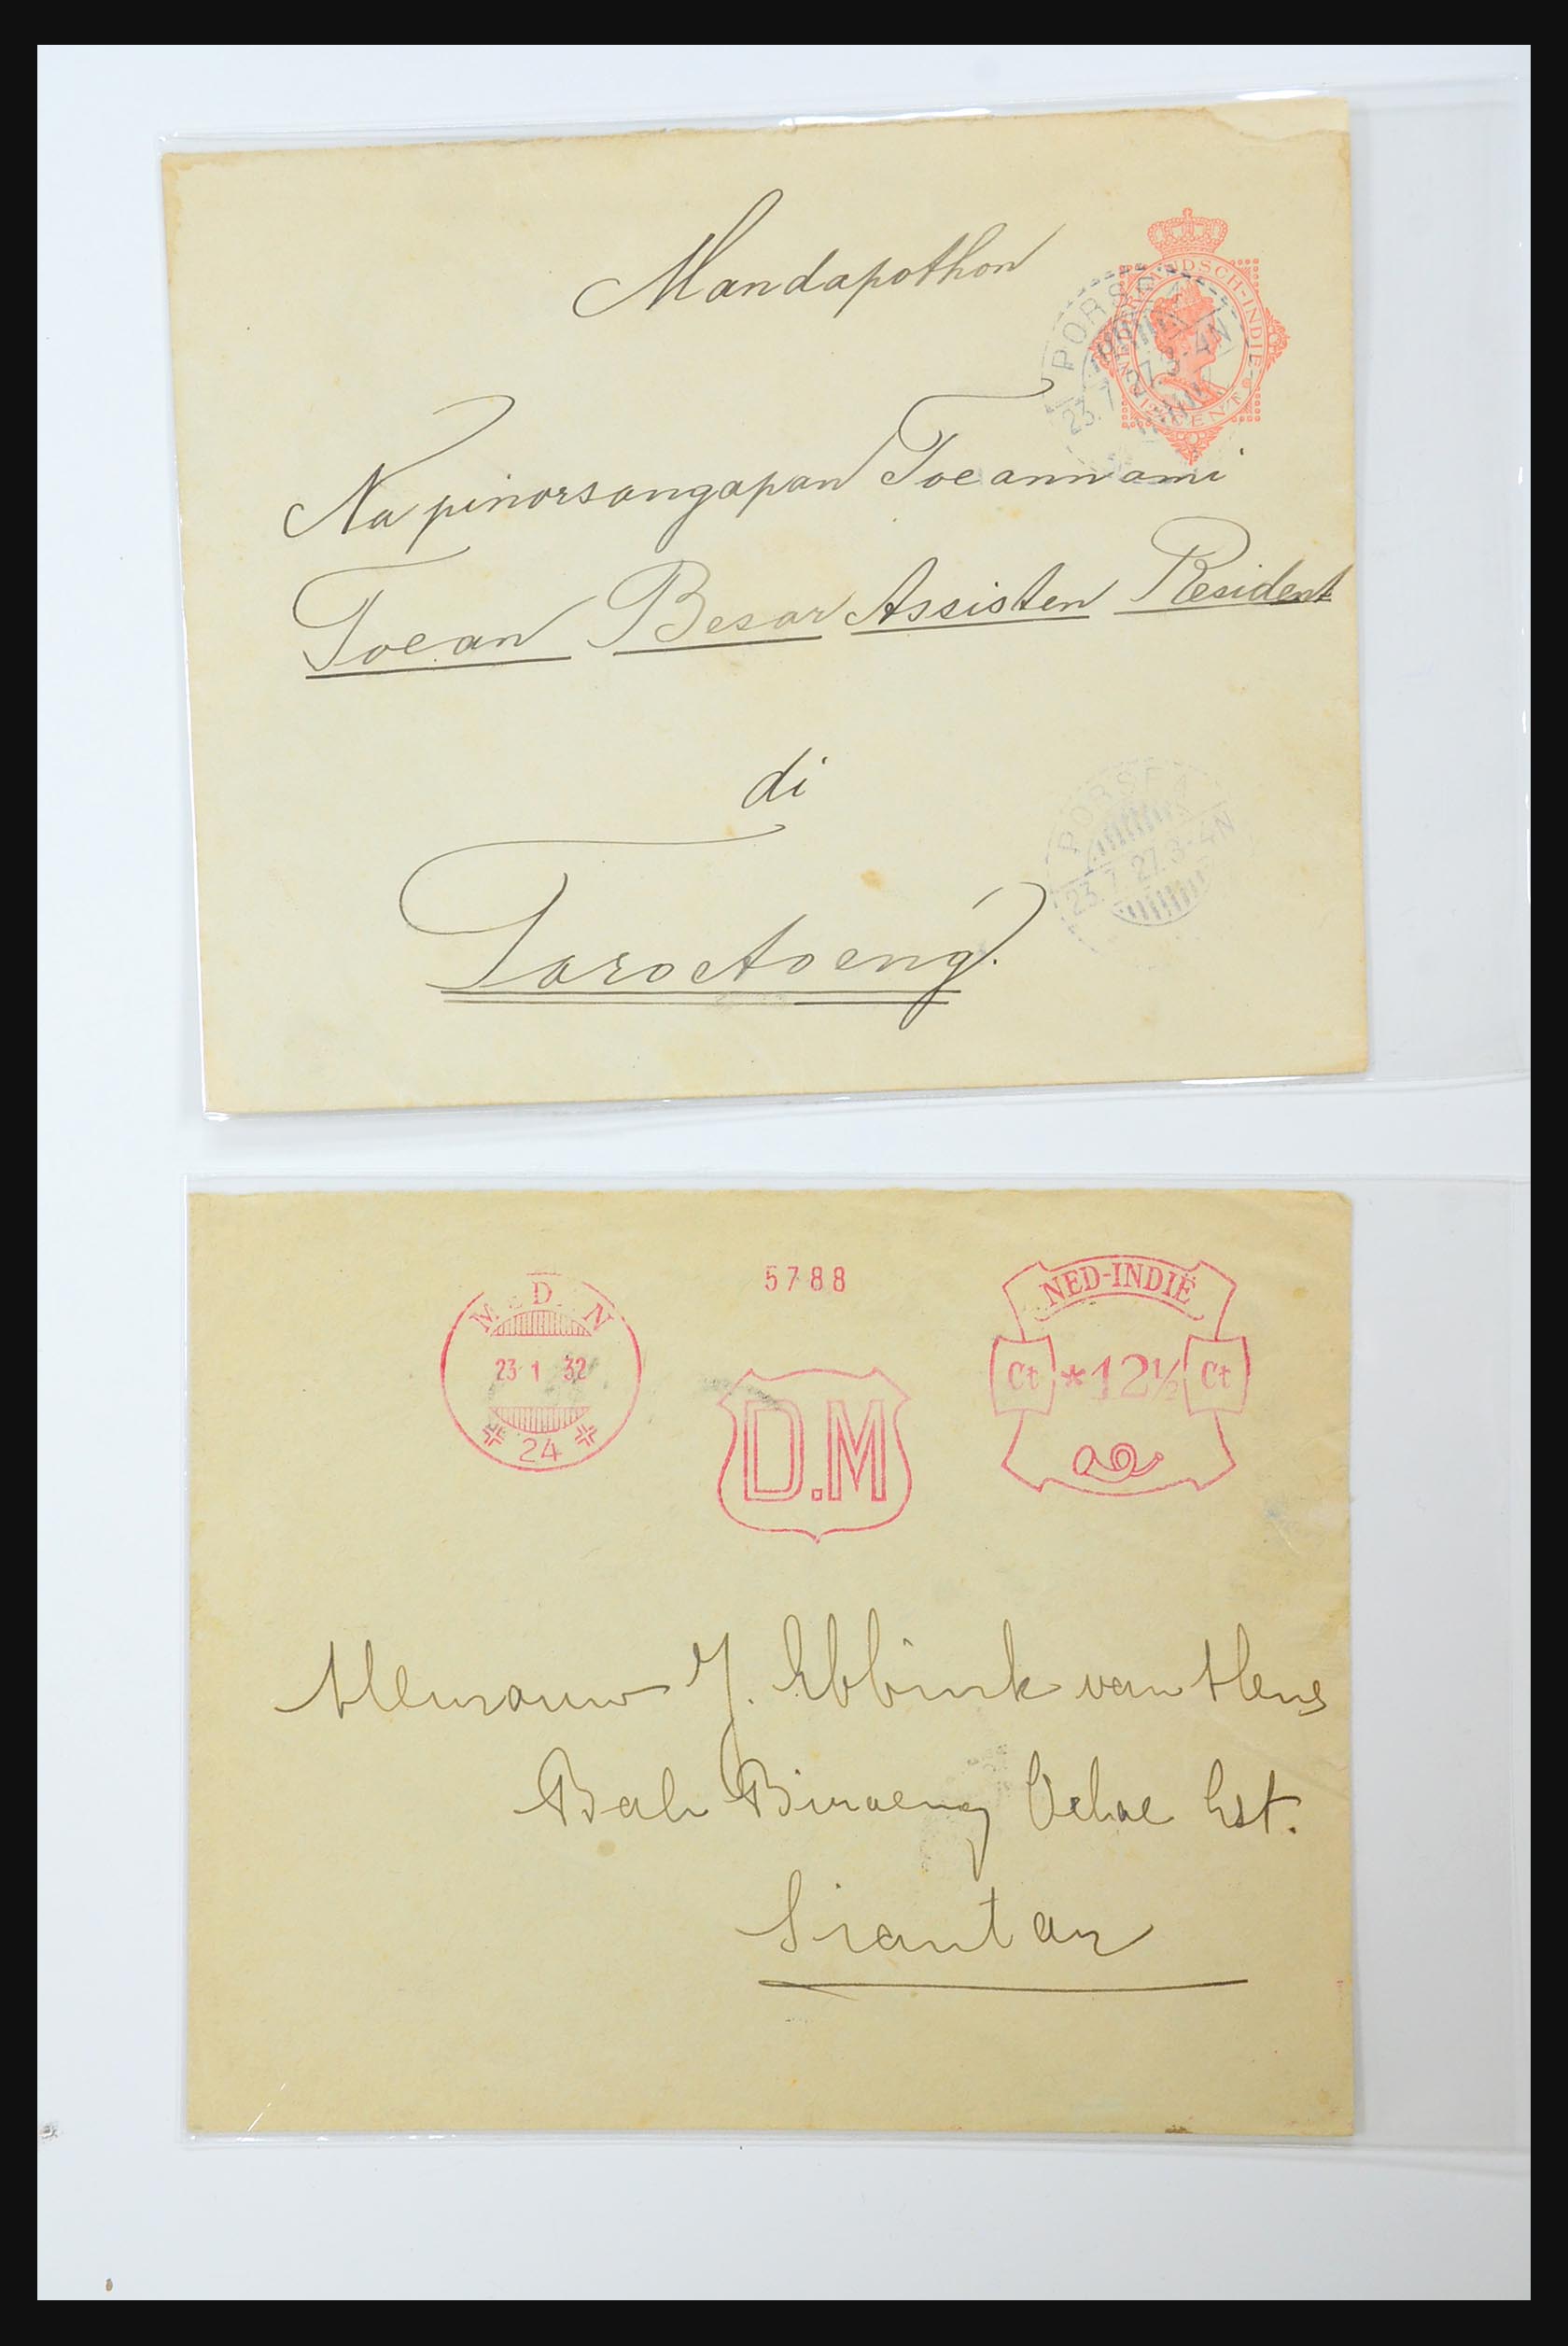 Mandapothon
NEDERLANDSCH-INDIE
12½ CENT
PORSEA
23.7.27.3-4N
Na pinorsangapan Toeannami
Toean Besar Assisten Resident
di
Taroetoeng.
PORSEA
23.7.27.3-4N
MEDAN
23 1 32
24
5788
D.M
NED-INDIË
Ct *12½ Ct
Mevrouw J. Ebbink van Hens
Bah Biroeng Oeloe Est.
Siantar